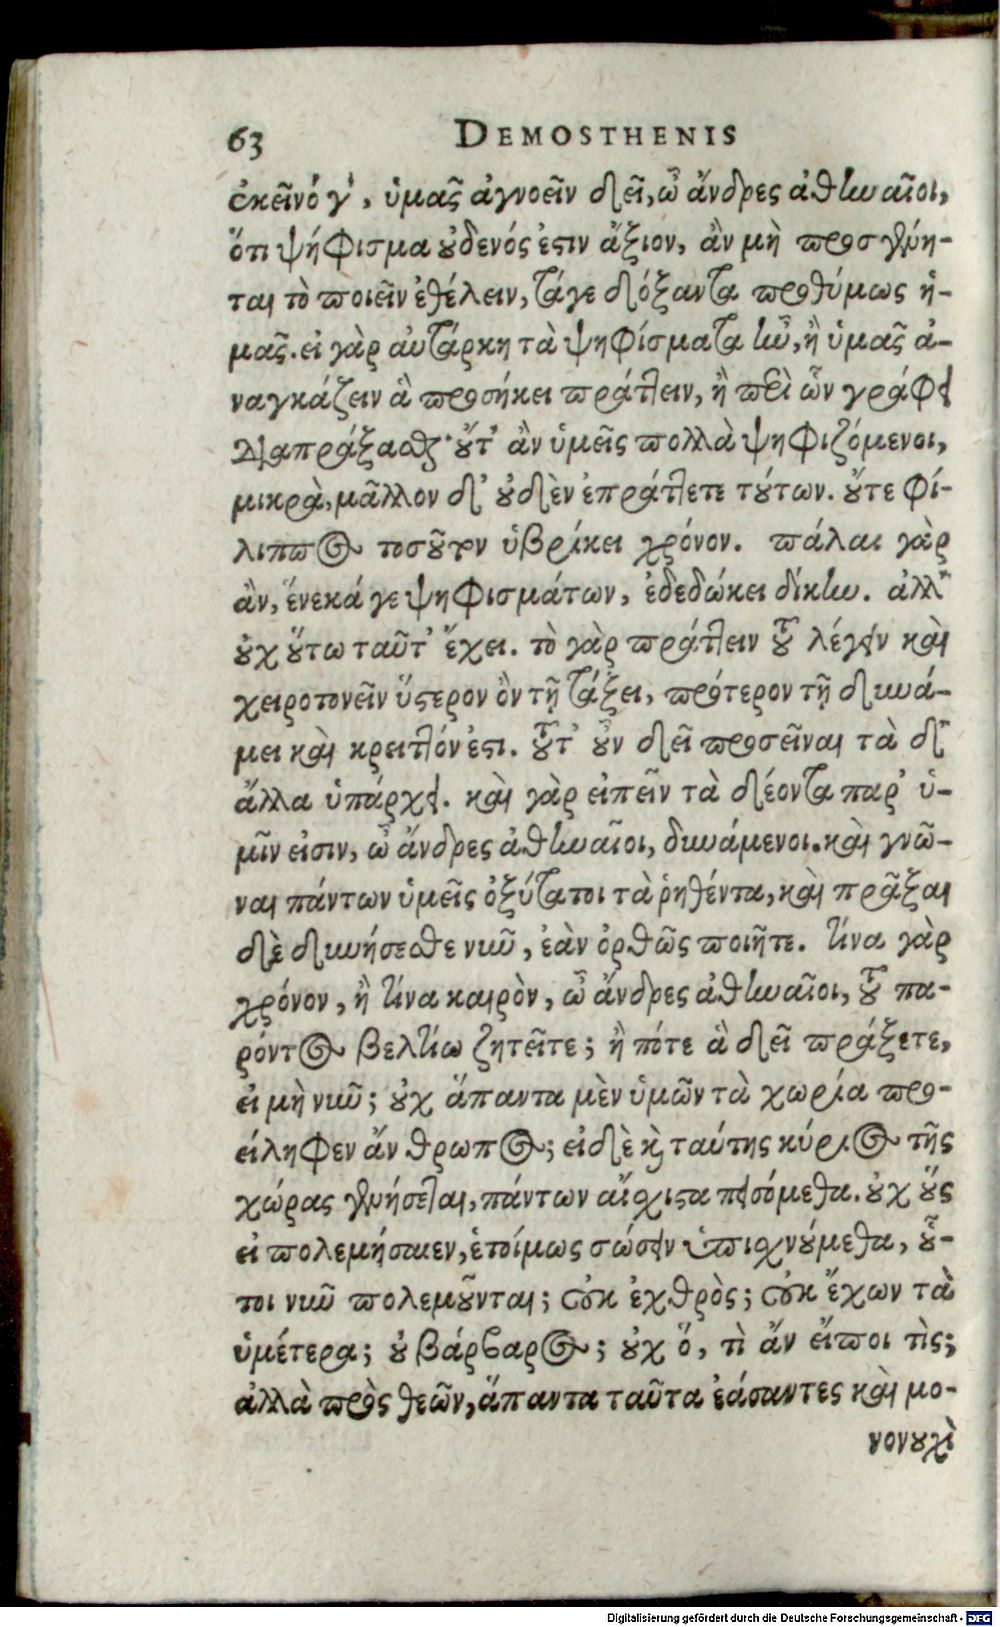 63 DEMOSTHENIS
ἐκεῖνό γ', ὑμᾶς ἀγνοεῖν δεῖ, ὦ ἄνδρες ἀθηναῖοι,
ὅτι ψήφισμα οὐδενός ἐστιν ἄξιον, ἂν μὴ προσγένη-
ται τὸ ποιεῖν ἐθέλειν, τάγε δόξαντα προθύμως ἡ-
μᾶς. εἰ γὰρ αὐτάρκη τὰ ψηφίσματα ἦν, ἢ ὑμᾶς ἀ-
ναγκάζειν ἃ προσήκει πράττειν, ἢ περὶ ὧν γράφει
διαπράξασθαι· οὔτ' ἂν ὑμεῖς πολλὰ ψηφιζόμενοι,
μικρὰ, μᾶλλον δ' οὐδὲν ἐπράττετε τούτων. οὔτε φί-
λιππος τοσοῦτον ὑβρίκει χρόνον. πάλαι γὰρ
ἂν, ἕνεκά γε ψηφισμάτων, ἐδεδώκει δίκην. ἀλλ'
οὐχ οὕτω ταῦτ' ἔχει. τὸ γὰρ πράττειν τοῦ λέγειν καὶ
χειροτονεῖν ὕστερον ὂν τῇ τάξει, πρότερον τῇ δυνά-
μει καὶ κρειττόν ἐστι. τοῦτ' οὖν δεῖ προσεῖναι τὰ δ'
ἄλλα ὑπάρχει. καὶ γὰρ εἰπεῖν τὰ δέοντα παρ' ὑ-
μῖν εἰσιν, ὦ ἄνδρες ἀθηναῖοι, δυνάμενοι. καὶ γνῶ-
ναι πάντων ὑμεῖς ὀξύτατοι τὰ ῥηθέντα, καὶ πρᾶξαι
δὲ δυνήσεσθε νῦν, ἐὰν ὀρθῶς ποιῆτε. τίνα γὰρ
χρόνον, ἢ τίνα καιρὸν, ὦ ἄνδρες ἀθηναῖοι, τοῦ πα-
ρόντος βελτίω ζητεῖτε; ἢ πότε ἃ δεῖ πράξετε,
εἰ μὴ νῦν; οὐχ ἅπαντα μὲν ὑμῶν τὰ χωρία προ-
είληφεν ἄνθρωπος; εἰ δὲ καὶ ταύτης κύριος τῆς
χώρας γενήσεται, πάντων αἴσχιστα πεισόμεθα. οὐχ οὓς
εἰ πολεμήσαιεν, ἑτοίμως σώσειν ὑπισχνούμεθα, οὗ-
τοι νῦν πολεμοῦνται; οὐκ ἐχθρὸς; οὐκ ἔχων τὰ
ὑμέτερα; οὐ βάρβαρος; οὐχ ὅ, τὶ ἄν εἴποι τὶς;
ἀλλὰ πρὸς θεῶν, ἅπαντα ταῦτα ἐάσαντες καὶ μο-
νονουχὶ
Digitalisierung gefördert durch die Deutsche Forschungsgemeinschaft - DFG